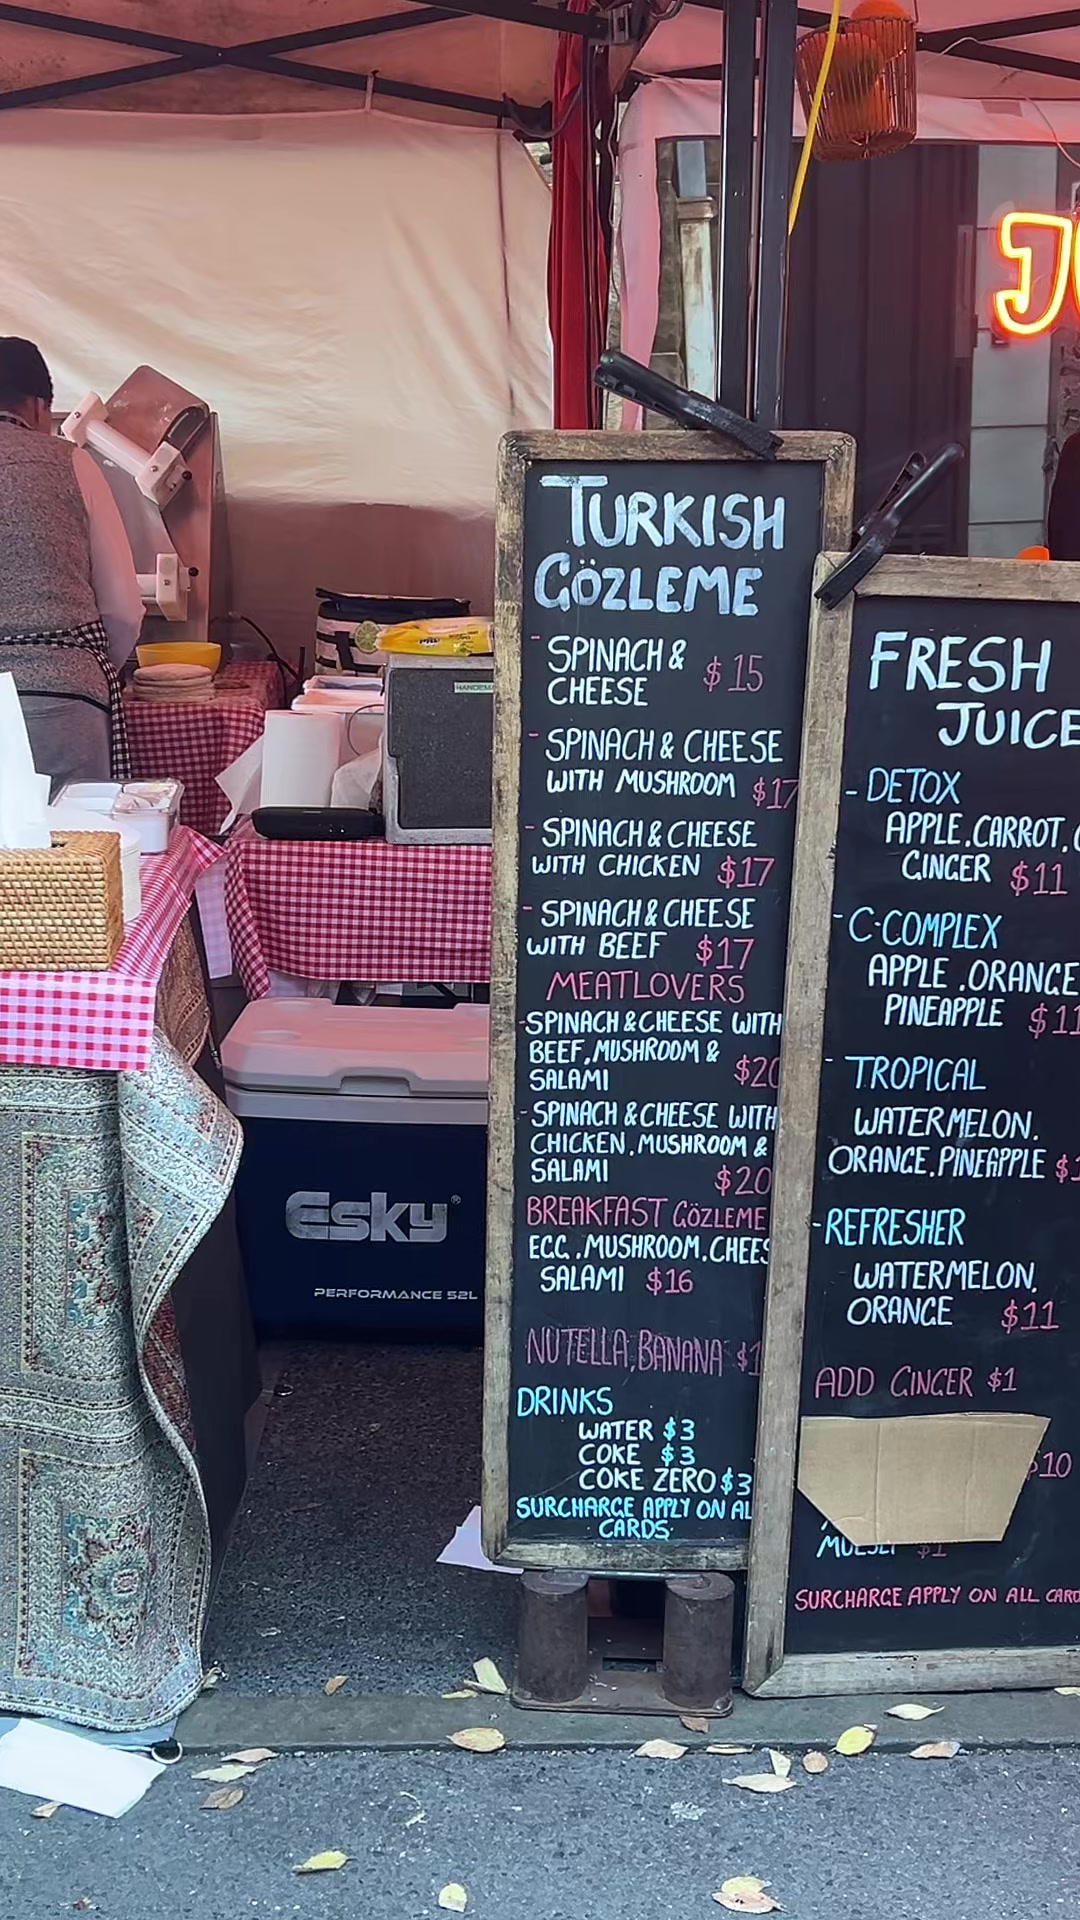 TURKISH
GÖZLEME
- SPINACH & $15
CHEESE
- SPINACH & CHEESE
WITH MUSHROOM $17
- SPINACH & CHEESE
WITH CHICKEN $17
- SPINACH & CHEESE
WITH BEEF $17
MEATLOVERS
- SPINACH & CHEESE WITH
BEEF, MUSHROOM &
SALAMI $20
- SPINACH & CHEESE WITH
CHICKEN, MUSHROOM &
SALAMI $20
BREAKFAST GÖZLEME
EGG, MUSHROOM, CHEES
SALAMI $16
NUTELLA, BANANA
DRINKS
WATER $3
COKE $3
COKE ZERO $3
SURCHARGE APPLY ON AL
CARDS
FRESH
JUICE
- DETOX
APPLE. CARROT.
GINGER $11
- C-COMPLEX
APPLE. ORANGE
PINEAPPLE $11
- TROPICAL
WATERMELON.
ORANGE. PINEAPPLE
- REFRESHER
WATERMELON.
ORANGE $11
ADD GINGER $1
$10
MUESLI $1
SURCHARGE APPLY ON ALL CARD
Esky®
PERFORMANCE 52L